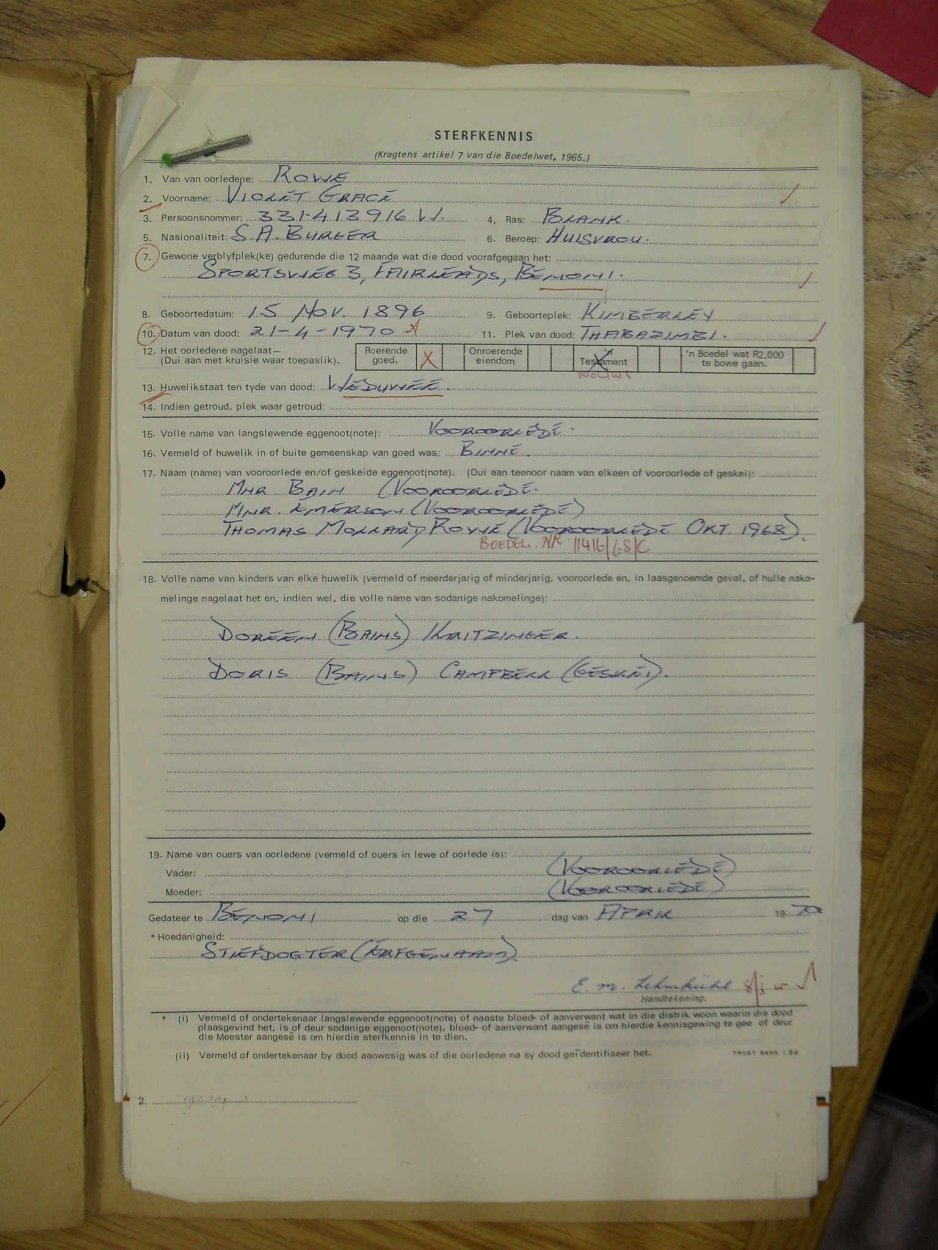 STERFKENNIS
(Kragtens artikel 7 van die Boedelwet, 1965.)
1. Van van oorledene: ROWE
2. Voorname: VIOLET GRACE
3. Persoonsnommer: 331413916 W. 4. Ras: BLANK.
5. Nasionaliteit: S.A. BURGER 6. Beroep: HUISVROU.
7. Gewone verblyfplek(ke) gedurende die 12 maande wat die dood voorafgegaan het:
SPORTSWEG 3, FAIRLEADS, BENONI.
8. Geboortedatum: 15 NOV. 1896 9. Geboorteplek: KIMBERLEY
10. Datum van dood: 21-4-1970 11. Plek van dood: THABAZIMBI.
12. Het oorledene nagelaat— Roerende goed. X Onroerende eiendom Testament 'n Boedel wat R2,000 te bowe gaan.
(Dui aan met kruisie waar toepaslik).
13. Huwelikstaat ten tyde van dood: WEDUWEE.
14. Indien getroud, plek waar getroud:
15. Volle name van langslewende eggenoot(note): VOOROORLEDE.
16. Vermeld of huwelik in of buite gemeenskap van goed was: BINNE.
17. Naam (name) van vooroorlede en/of geskeide eggenoot(note). (Dui aan teenoor naam van elkeen of vooroorlede of geskei):
MNR BAIN (VOOROORLEDE.
MNR. EMERSON (VOOROORLEDE)
THOMAS MOLLARD ROWE (VOOROORLEDE OKT. 1968).
BOEDEL NR 11416/68/C
18. Volle name van kinders van elke huwelik (vermeld of meerderjarig of minderjarig, vooroorlede en, in laasgenoemde geval, of hulle nako-
melinge nagelaat het en, indien wel, die volle name van sodanige nakomelinge):
DOREEN (BAINS) KRITZINGER.
DORIS (BAINS) CAMPBELL (GESKEI).
19. Name van ouers van oorledene (vermeld of ouers in lewe of oorlede is):
Vader: (VOOROORLEDE)
Moeder: (VOOROORLEDE)
Gedateer te BENONI op die 27 dag van APRIL 19 70
* Hoedanigheid:
STIEFDOGTER (ERFGENAAM)
E. M. Lehmkühl
Handtekening.
* (i) Vermeld of ondertekenaar langslewende eggenoot(note) of naaste bloed- of aanverwant wat in die distrik woon waarin die dood
plaasgevind het, is of deur sodanige eggenoot(note), bloed- of aanverwant aangesê is om hierdie kennisgewing te gee of deur
die Meester aangesê is om hierdie sterfkennis in te dien.
(ii) Vermeld of ondertekenaar by dood aanwesig was of die oorledene na sy dood geïdentifiseer het.
TRUST BANK 1.58
2.